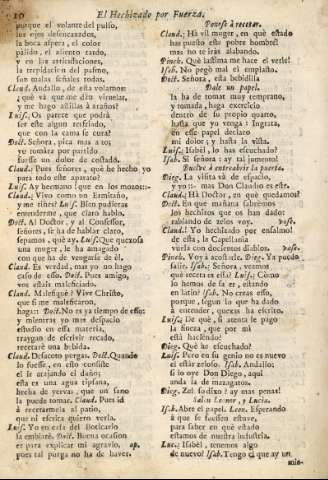 10
El Hechizado por Fuerza.
porque el volante del pulso,
los ojos desencaxados,
la boca aspera, el color
palido, el aliento tardo,
y en las articulaciones,
la trepidacion del pasmo,
son malas señales todas.
Claud. Andallo, de esta volamos:
què và que me dàn viruelas,
y me hago astillas à araños?
Luis. Os parece que podrà
ser este algun resfriado,
que con la cama se cura?
Doct. Señora, pica mas alto;
y tomàra por partido
fuesse un dolor de costado.
Claud. Pues señores, què he hecho yo
para todo este aparato?
Luis. Ay hermano! que en los mozos::-
Claud. Vivo como un Ermitaño,
y me riñes? Luis. Bien pudieras
entenderme, que claro hablo.
Doct. Al Doctor, y al Confessor,
señores, se ha de hablar claro,
sepamos, què ay. Luis. Que quexosa
una muger, le ha amagado
con que ha de vengarse de èl.
Claud. Es verdad, mas yo no hago
caso de esso. Doct. Pues amigo,
vos estais maleficiado.
Claud. Malefique? Vive Christo,
que si me maleficaron,
haga:: Doct. No es ya tiempo de esso;
y mientras yo mas despacio
estudio en essa materia,
traygan de escrivir recado,
recetarè una bebida.
Claud. Desacoto pergas. Doct. Quando
lo fuesse, en esto consiste
el ir atajando el daño;
esta es una agua tipsana,
hecha de yervas, que un sano
la puede tomar. Claud. Pues id
à recetarmela al patio,
que ni escrita quiero verla.
Luis. Yo en casa del Boticario
la embiarè. Doct. Buena ocasion
es para explicar mi agravio, ap.
pues tal purga no ha de haver.
Ponese à recetar.
Claud. Hà vil muger, en què estado
has puesto este pobre hombre!
mas no te iràs alabando.
Pinch. Què lastima me hace el verle!
Isab. No pegò mal el emplasto.
Doct. Señora, esta bebidilla
Dale un papel.
la ha de tomar muy temprano,
y tomada, haga exercicio
dentro de su propio quarto,
hasta que yo venga: Ingrata,
en esse papel declaro
mi dolor; y hasta la vista.
Luis. Isabèl, lo has escuchado?
Isab. Sì señora: ay tal jumento!
Buelve à entreabrir la puerta.
Dieg. La visita và de espacio,
y yo::- mas Don Claudio es este.
Claud. Hà Doctor, en què quedamos?
Doct. En que mañana sabremos
los hechizos que os han dado:
rabiando de zelos voy. vase.
Claud. Yo hechizado por ensalmo!
de esta, la Capellania
vuela con docientos diablos. vase.
Pinch. Voy à acostarle. Dieg. Ya puedo
salir. Isab. Señora, veamos
què receta es essa? Luis. Còmo
lo hemos de saber, estando
en latin? Isab. No creas esso,
porque, segun lo que ha dado
à entender, quexas ha escrito.
Luis. De què, si atento le pago
la fineza, que por mì
està haciendo?
Dieg. Què he escuchado?
Luis. Pero en su genio no es nuevo
el estàr zeloso. Isab. Andallo:
si lo oye Don Diego, aqui
anda la de mazagatos.
Dieg. Zeloso dixo? ay mas penas!
Salen Leonor, y Lucia.
Isab. Abre el papel. Leon. Esperando
à que se fuessen estuve,
para saber en què estado
estamos de nuestra industria.
Luc. Isabèl, tenemos algo
de nuevo? Isab. Tengo el que ay un
mie-